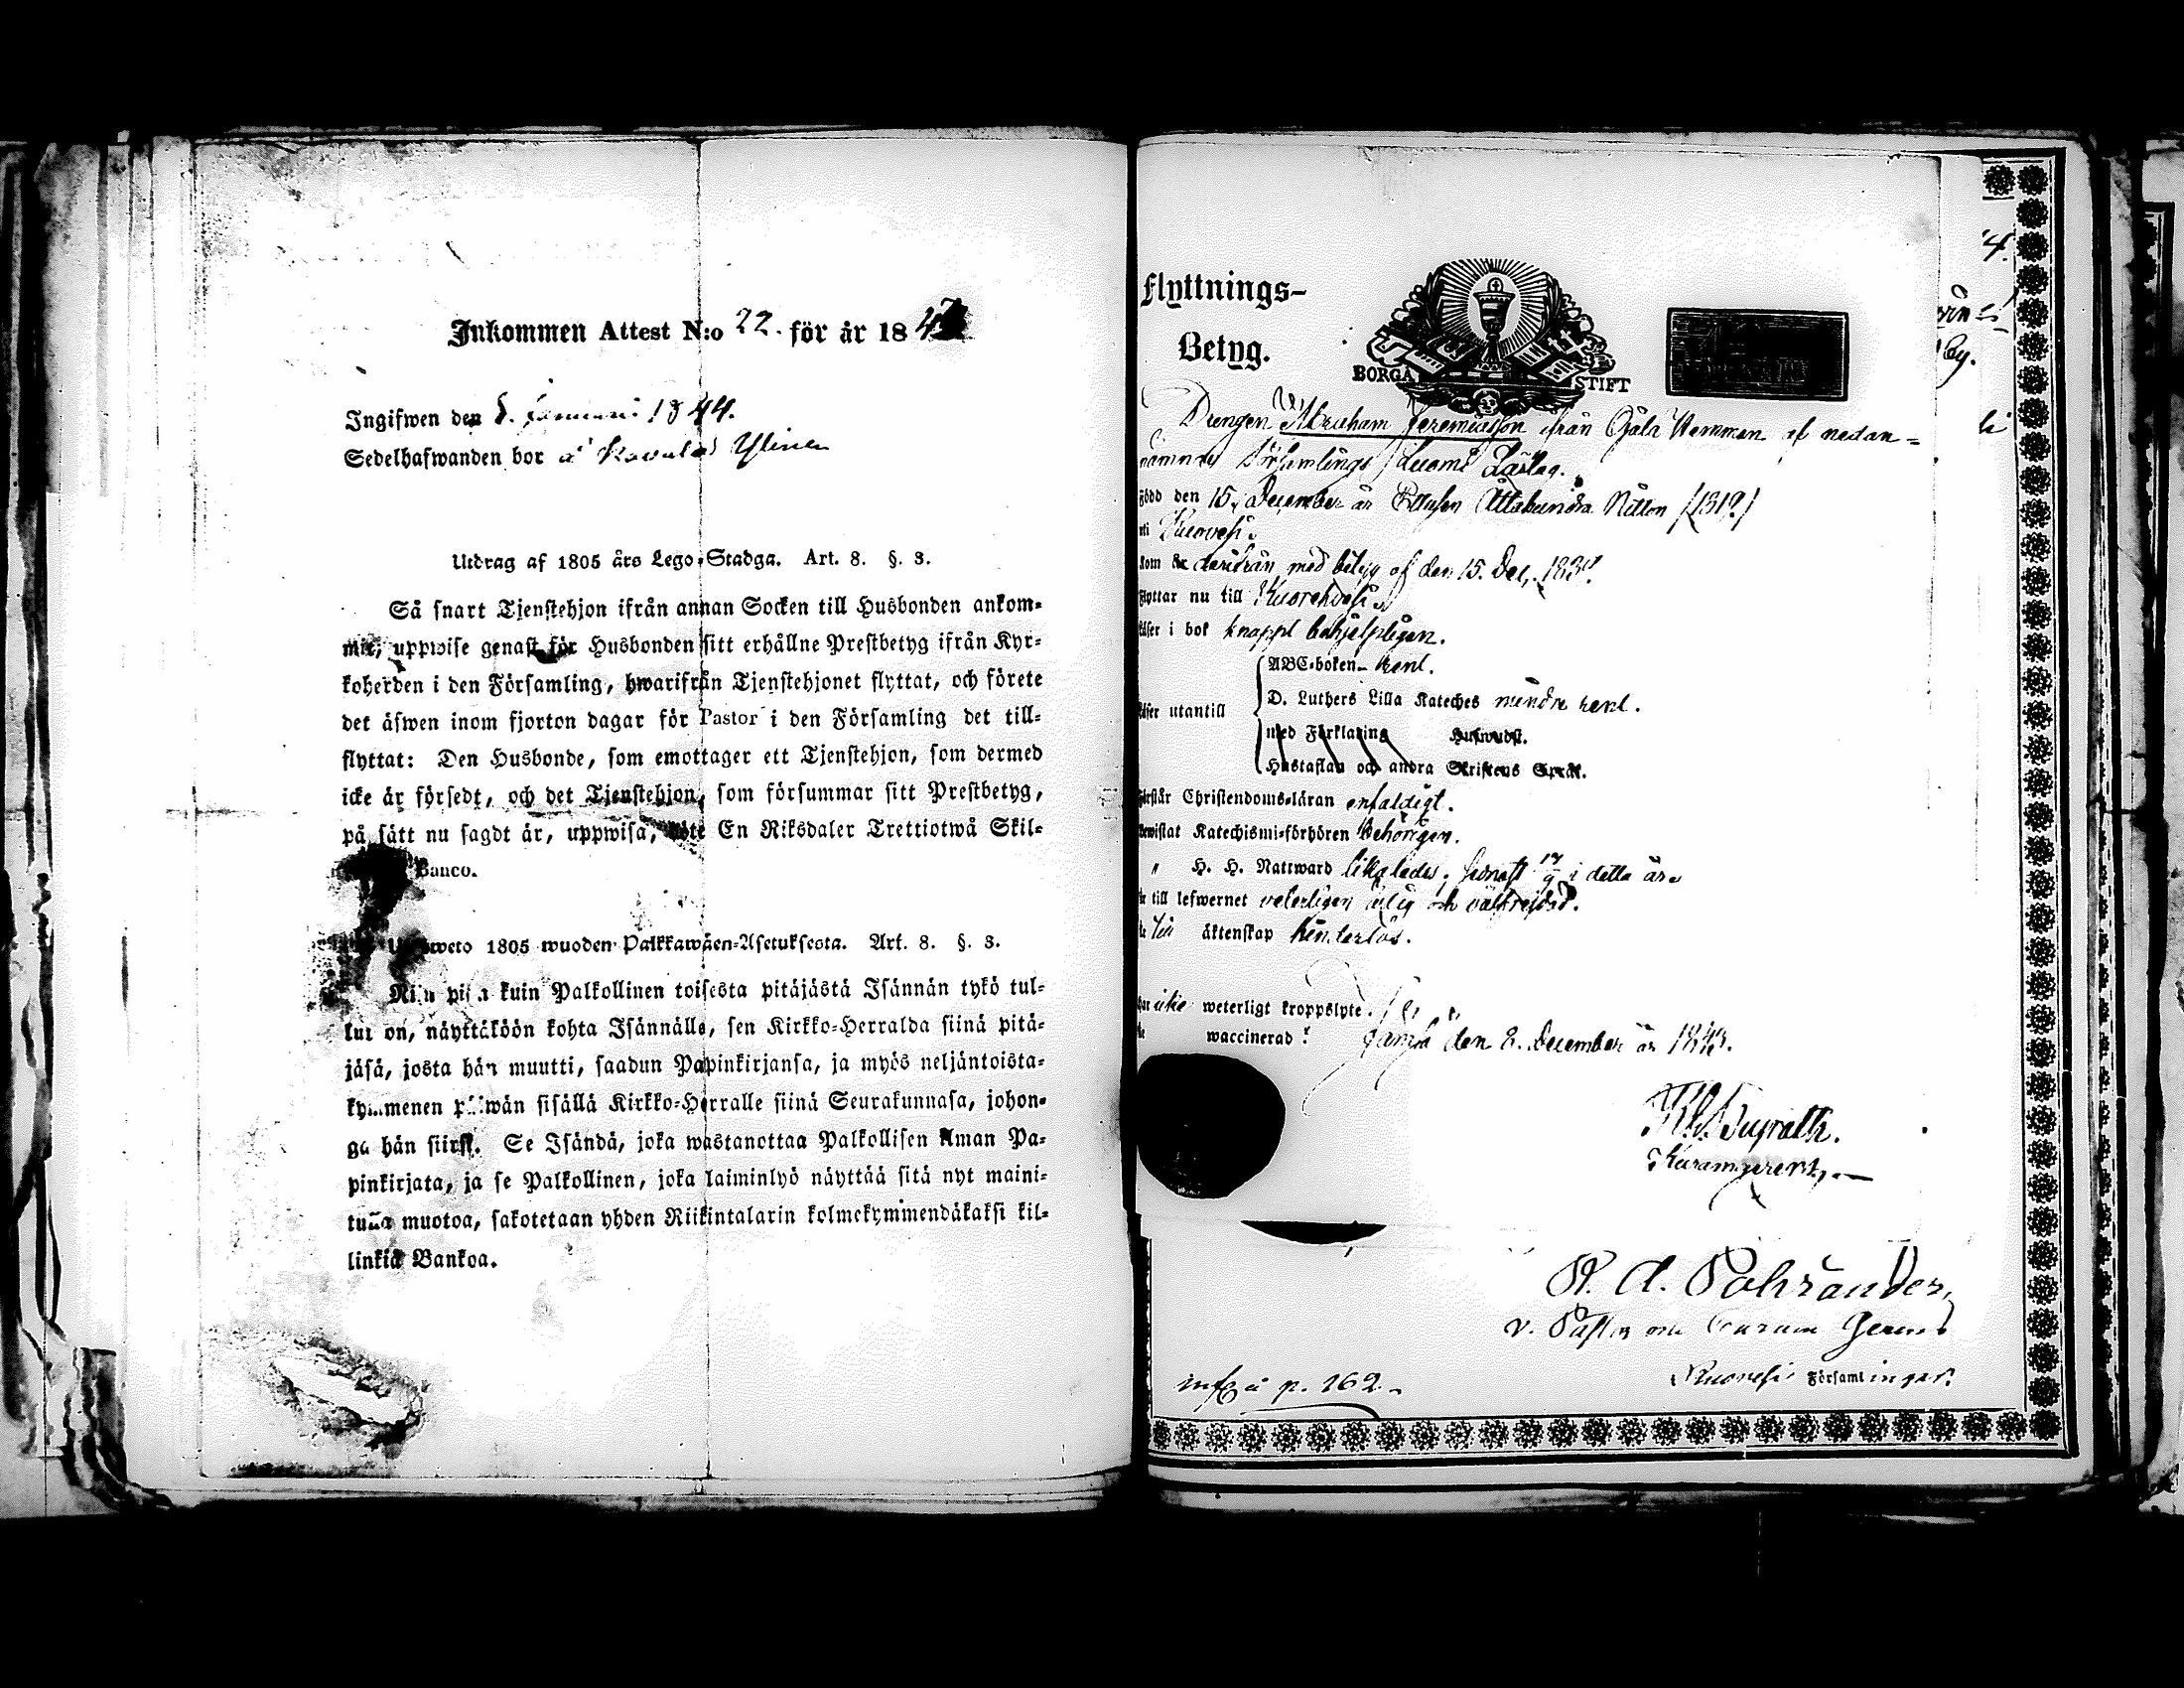 Inkommen Attest N:o 22. för år 184
Ingifwen den 8. Januari 1844.
Sedelhafwanden bor å Ylinen
Utdrag af 1805 års Lego-Stadga. Art. 8. §. 3.
Så snart Tjenstehjon ifrån annan Socken till Husbonden ankom-
mit, uppwise genast för Husbonden sitt erhållne Prestbetyg ifrån Kyr-
koherden i den Församling, hwarifrån Tjenstehjonet flyttat, och förete
det äfwen inom fjorton dagar för Pastor i den Församling det till-
flyttat: Den Husbonde, som emottager ett Tjenstehjon, som dermed
icke är försedt, och det Tjenstehjon, som försummar sitt Prestbetyg,
på sätt nu sagdt är, uppwisa, böte En Riksdaler Trettiotwå Skil-
Banco.
1805 wuoden Palkkawäen-Asetuksesta. Art. 8. §. 3.
Niin pian kuin Palkollinen toisesta pitäjästä Isännän tykö tul-
lut on, näyttäköön kohta Isännälle, sen Kirkko-Herralda siinä pitä-
jäsä, josta hän muutti, saadun Papinkirjansa, ja myös neljäntoista-
kymmenen päiwän sisällä Kirkko-Herralle siinä Seurakunnasa, johon-
ga hän siirsi. Se Isändä, joka wastanottaa Palkollisen ilman Pa-
pinkirjata, ja se Palkollinen, joka laiminlyö näyttää sitä nyt maini-
tulla muotoa, sakotetaan yhden Riikintalarin kolmekymmendäkaksi kil-
linkiä Bankoa.
Flyttnings-
Betyg.
BORGÅ STIFT
Drengen Abraham Jeremiasson ifrån Hemman af nedan-
nämnde Församlings
Född den 15. December år Ettusen Åttahundra Nitton (1819)
i Ruovesi.
kom derifrån med betyg af den 15. Dec. 183
Flyttar nu till Kuorehvesi
Läser i bok knappt behjelpligen.
ABC-boken rent.
D. Luthers Lilla Kateches mindre rent.
Läser utantill
med Förklaring Hufwudst.
Hustaflan och andra Skriftens Språk.
Förstår Christendoms-läran enfaldigt.
Bewistat Katechismi-förhören behörigen.
" H. H. Nattward likaledes, senast i detta år.
till lefwernet veterligen ärlig och välfrejdad.
till äktenskap hinderlös.
har icke weterligt kroppslyte.
waccinerad. Jämsä den 8. December år 1843.
R. A. Pohrander,
v. Pastor
Ruovesi Församlingar.
å p. 162.